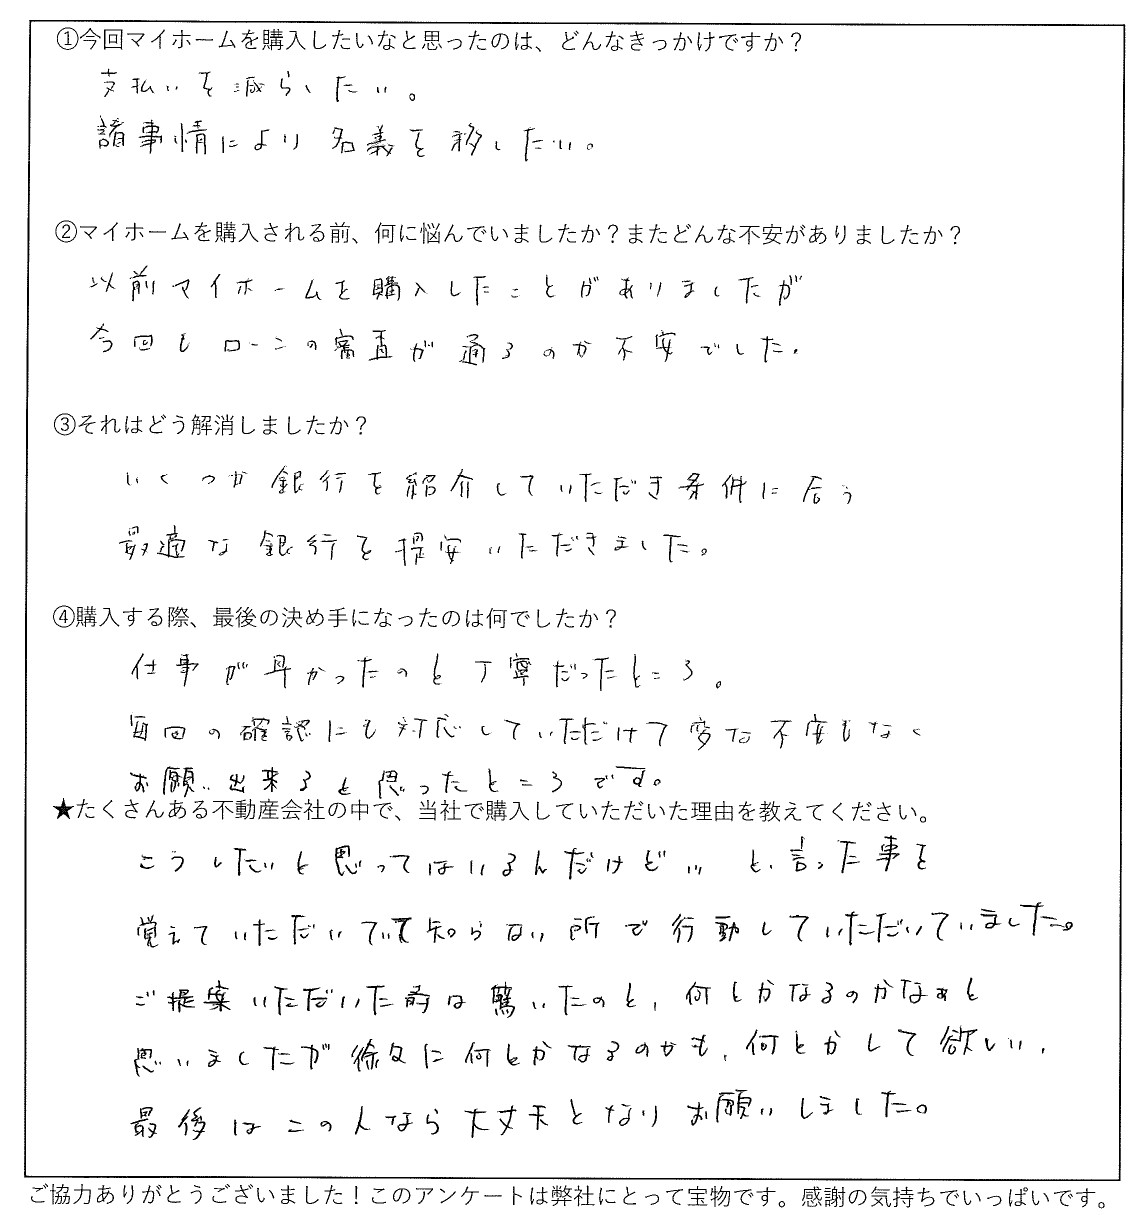 ①今回マイホームを購入したいなと思ったのは、どんなきっかけですか？
支払いを減らしたい。
諸事情により名義を移したい。
②マイホームを購入される前、何に悩んでいましたか？またどんな不安がありましたか？
以前マイホームを購入したことがありましたが
今回もローンの審査が通るのか不安でした。
③それはどう解消しましたか？
いくつか銀行を紹介していただき条件に合う
最適な銀行を提案いただきました。
④購入する際、最後の決め手になったのは何でしたか？
仕事が早かったのと丁寧だったところ。
毎回の確認にも対応していただけて変な不安もなく
お願い出来ると思ったところです。
★たくさんある不動産会社の中で、当社で購入していただいた理由を教えてください。
こうしたいと思ってはいるんだけど… と、言った事を
覚えていただいてて知らない所で行動していただいていました。
ご提案いただいた時は驚いたのと、何とかなるのかなぁと
思いましたが徐々に何とかなるのかも、何とかして欲しい、
最後はこの人なら大丈夫となりお願いしました。
ご協力ありがとうございました！このアンケートは弊社にとって宝物です。感謝の気持ちでいっぱいです。